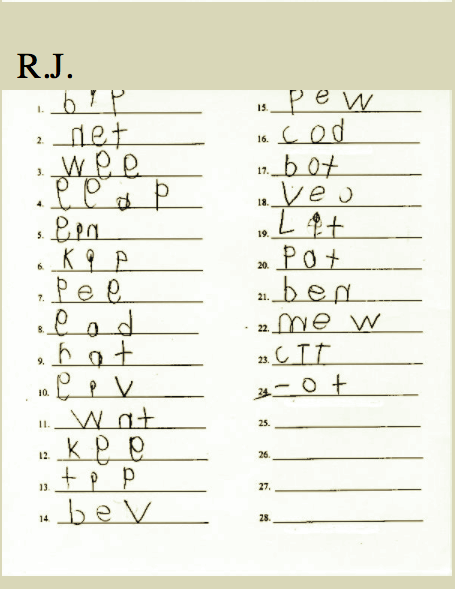 R.J.
1. bip
2. net
3. wee
4. eeap
5. ein
6. kip
7. pee
8. ead
9. hat
10. eiv
11. wnt
12. kee
13. tpp
14. bev
15. pew
16. cod
17. bot
18. veo
19. Let
20. pot
21. ben
22. mew
23. CTT
24. -ot
25.
26.
27.
28.